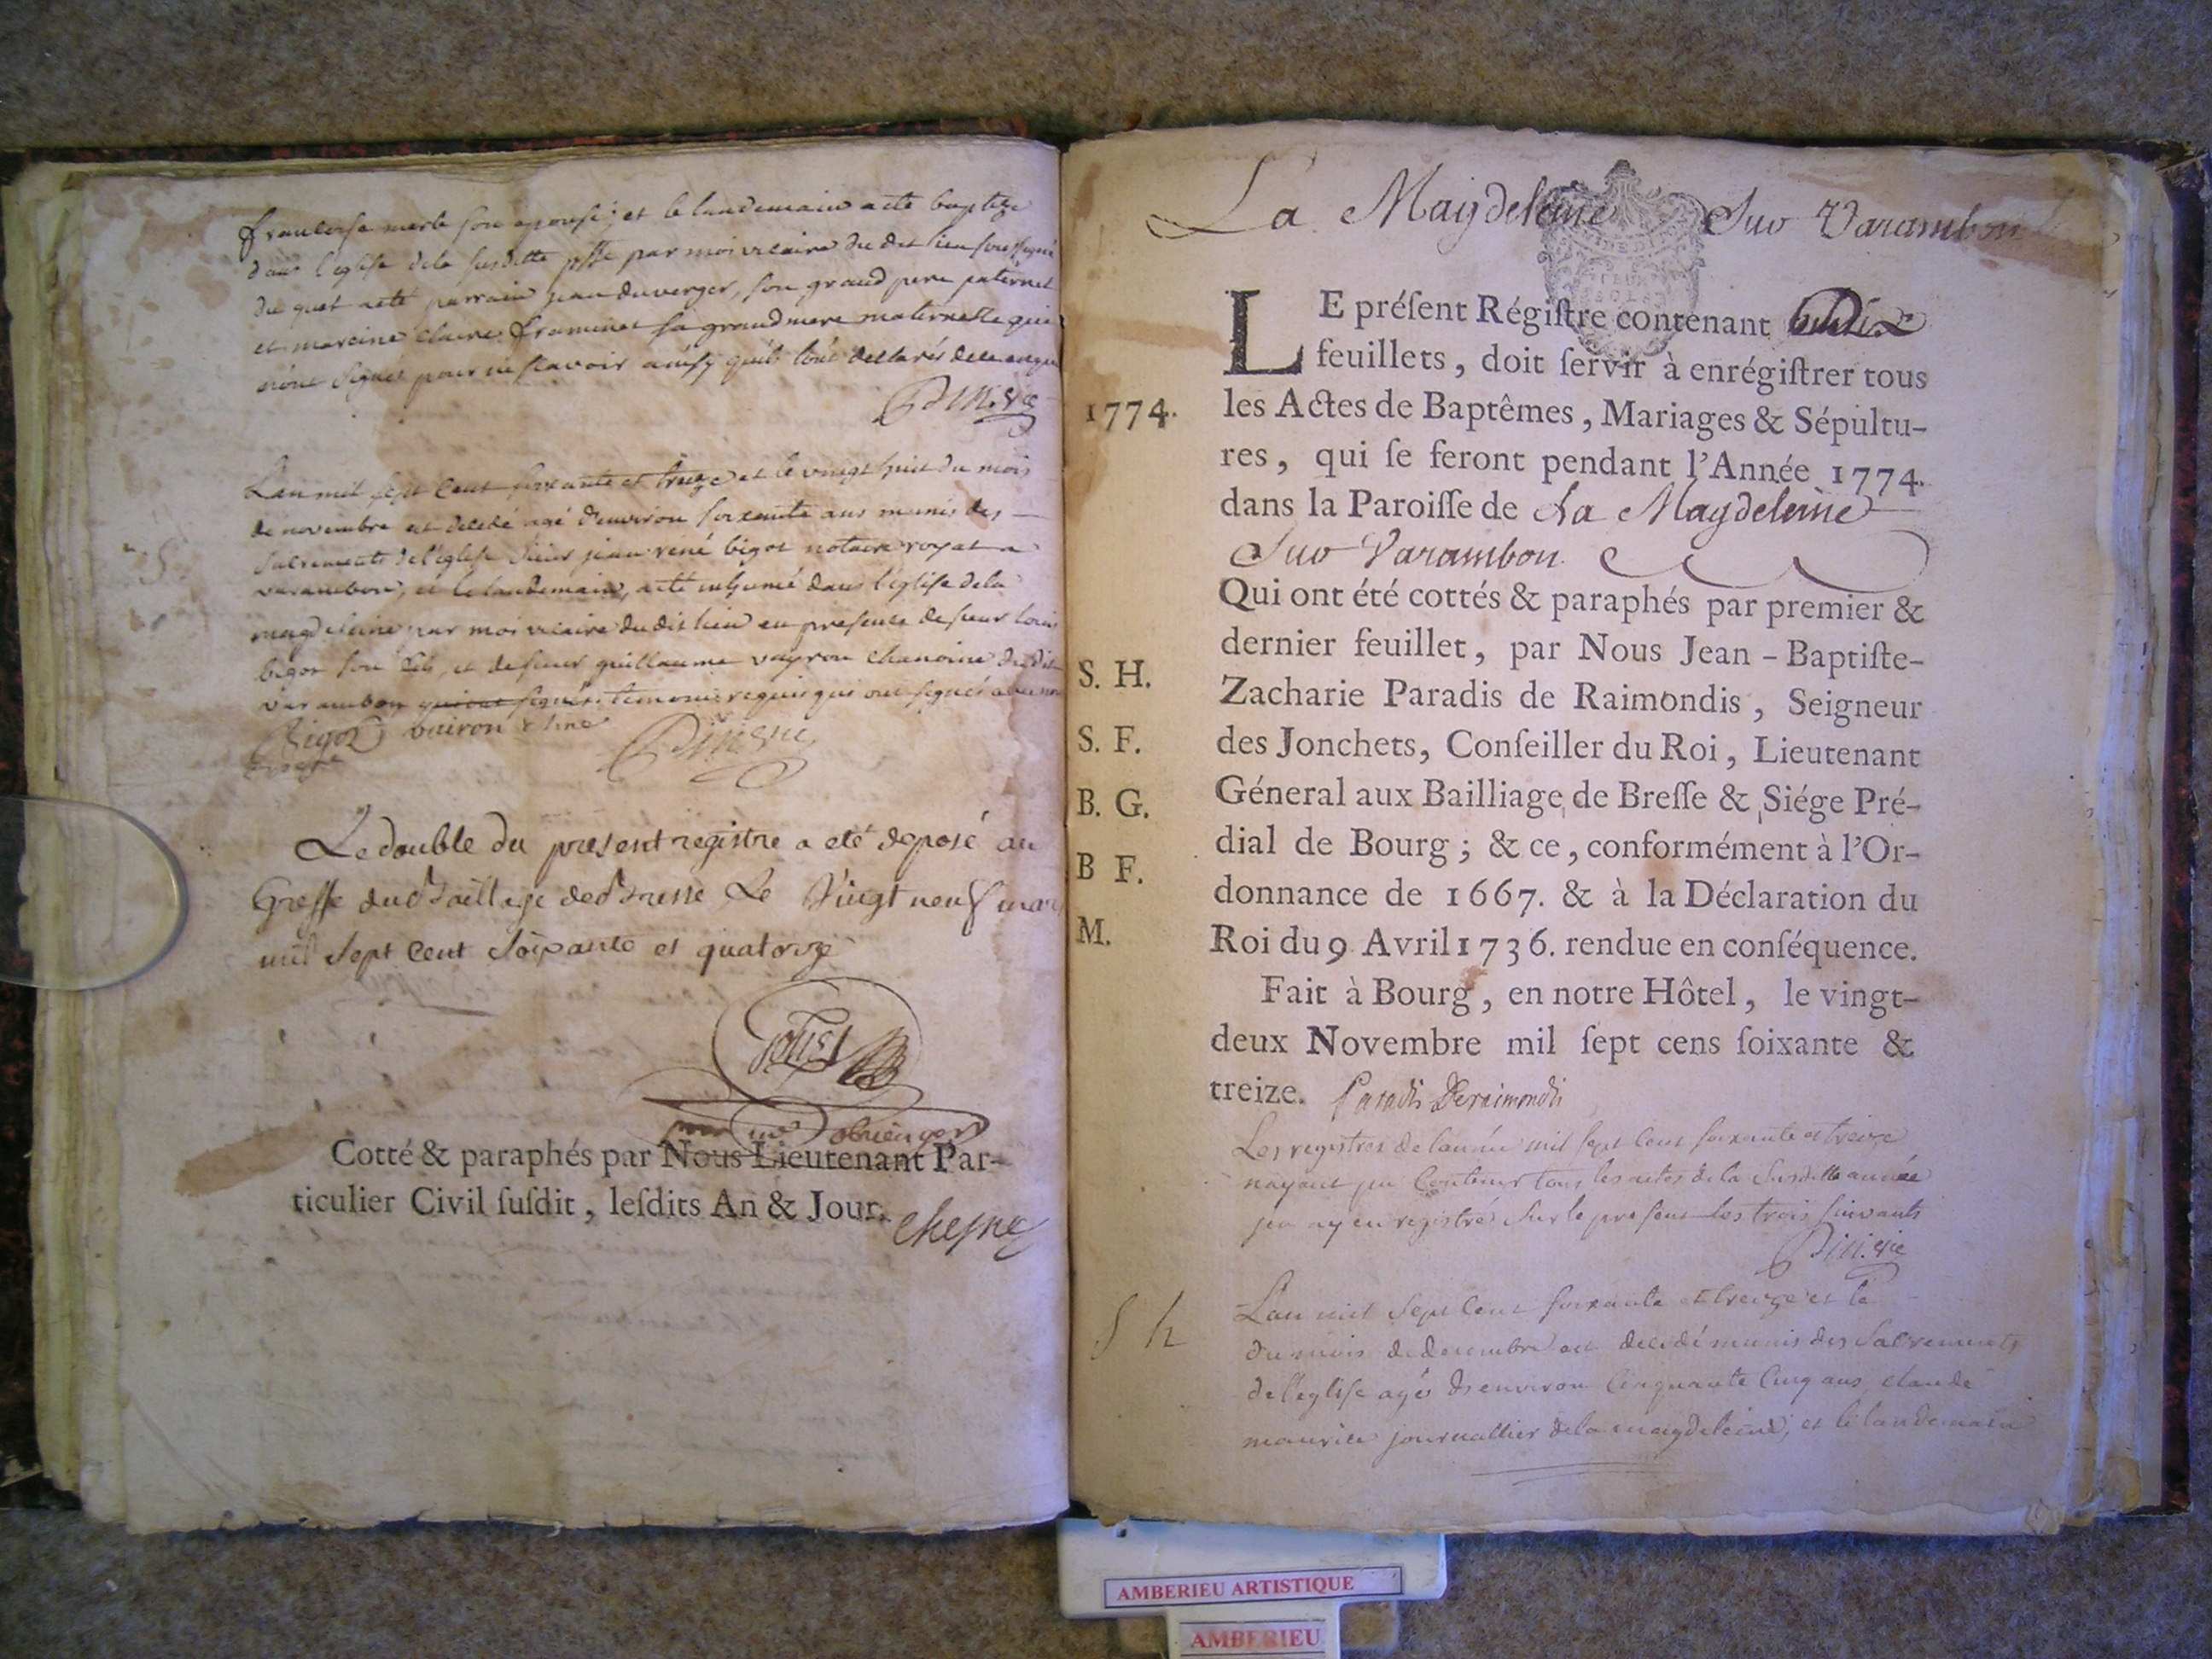 francoise merle son epouse, et le landemain a eté baptizé
dans l'eglise de la susditte psse par moi vicaire du dit lieu soussigné
du quel a eté parrain jean duverger, son grand pere paternel
et maraine claire framinet sa grand mere maternelle qui
n'ont signés pour ne scavoir ainsy qu'ils l'ont declarés de ce enquis
L'an mil sept cent soixante et treize et le vingt huit du mois
de novembre est decedé agé d'environ soixante ans munis des
sacrements de l'eglise sieur jean rené bigot notaire royal a
varambon, et le landemain, a eté inhumé dans l'eglise de la
magdeleine par moi vicaire du dit lieu en presence de sieur louis
bigot son fils, et de sieur guillaume vayron chanoine du dit
varambon qui ont signés temoins requis qui ont signés avec moi
Bigot vairon chne
Le double du present registre a eté deposé au
Greffe du Baillage de Bresse Le Vingt neuf mars
mil sept cent soixante et quatorze
Cotté & paraphés par Nous Lieutenant Par-
ticulier Civil ſuſdit, leſdits An & Jour.
Chesne
La Magdeleine Sur Varambon
LE préſent Régiſtre contenant dix
feuillets, doit ſervir à enrégiſtrer tous
1774. les Actes de Baptêmes, Mariages & Sépultu-
res, qui ſe feront pendant l'Année 1774.
dans la Paroiſſe de La Magdeleine
Sur Varambon
Qui ont été cottés & paraphés par premier &
dernier feuillet, par Nous Jean-Baptiſte-
S. H. Zacharie Paradis de Raimondis, Seigneur
S. F. des Jonchets, Conſeiller du Roi, Lieutenant
B. G. Géneral aux Bailliage de Breſſe & Siége Pré-
B F. dial de Bourg; & ce, conformément à l'Or-
donnance de 1667. & à la Déclaration du
M. Roi du 9 Avril 1736. rendue en conſéquence.
Fait à Bourg, en notre Hôtel, le vingt-
deux Novembre mil ſept cens ſoixante &
treize. Paradis Deraimondis
Les registres de l'année mil sept cent soixante et treize
nayant pu contenir tous les actes de la susditte année
jen ay enregistré sur le present les trois suivants
S h L'an mil sept cent soixante et treize et le
du mois de decembre est decedé munis des sacrements
de l'eglise agé d'environ cinquante cinq ans claude
maurice journallier de la magdeleine, et le landemain
AMBERIEU ARTISTIQUE
AMBERIEU